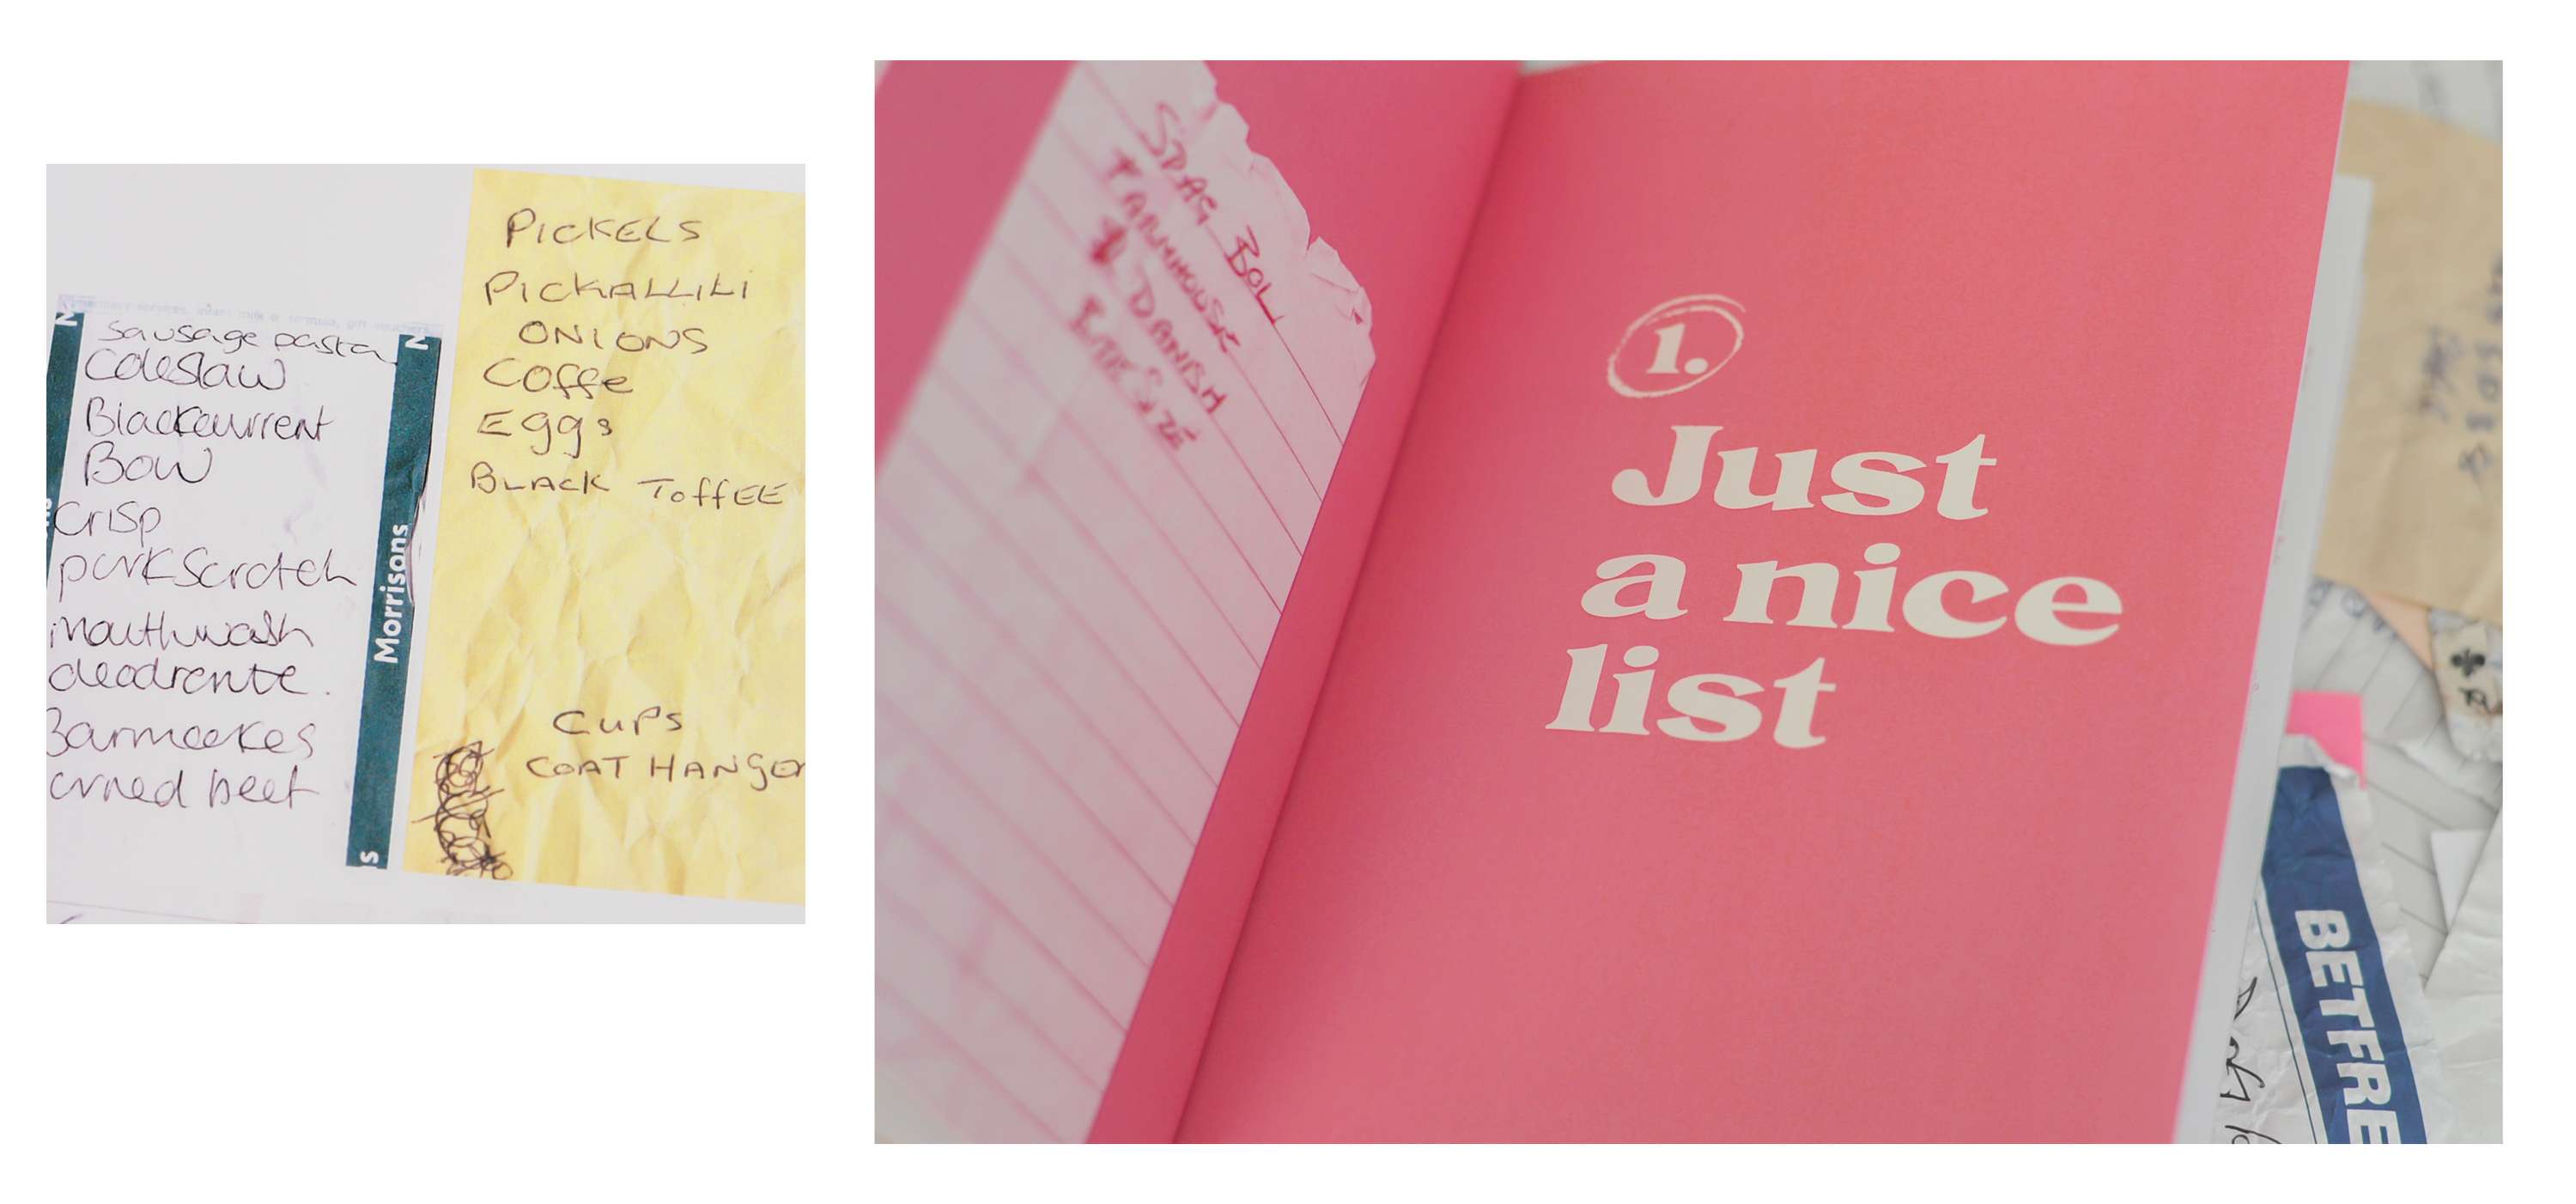 Sausage pasta
Coleslaw
Blackcurrent
Bow
Crisp
pork Scratch
mouthwash
deodrante.
corned beef
Morrisons
PICKELS
PICKALLILI
ONIONS
COffe
Eggs
BLACK ToffEE
CuPS
COAT HANGER
SPAG BOL
FARMHOUSE
DANISH
BITE SIZE
1.
Just
a nice
list
BETFRE